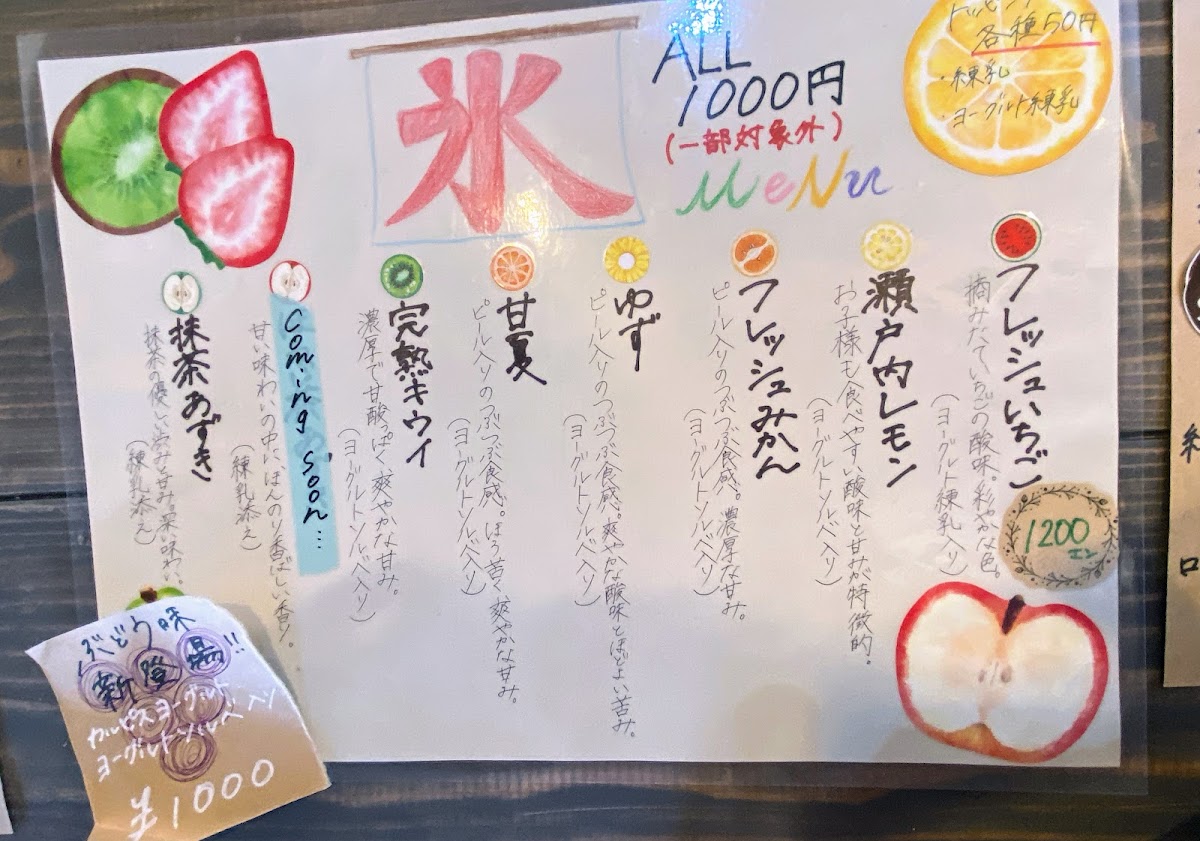 氷
ALL
1000円
(一部対象外)
MeNu
トッピング
各種50円
・練乳
・ヨーグルト練乳
フレッシュいちご
摘みたていちごの酸味。彩やかな色。
(ヨーグルト練乳入り)
1200
エン
瀬戸内レモン
お子様も食べやすい酸味と甘みが特徴的。
(ヨーグルトソルベ入り)
フレッシュみかん
ピール入りのつぶつぶ食感。濃厚な甘み。
(ヨーグルトソルベ入り)
ゆず
ピール入りのつぶつぶ食感。爽やかな酸味とほどよい苦み。
(ヨーグルトソルベ入り)
甘夏
ピール入りのつぶつぶ食感。ほろ苦く爽やかな甘み。
(ヨーグルトソルベ入り)
完熟キウイ
濃厚で甘酸っぱく爽やかな甘み。
(ヨーグルトソルベ入り)
Coming Soon...
甘い味わいの中に、ほんのり香ばしい香り。
(練乳添え)
抹茶あずき
抹茶の優しい渋みと甘み。深い味わい。
(練乳添え)
ぶどう味
新登場!!
カルピスヨーグルト
ヨーグルトソルベ入り
¥1000